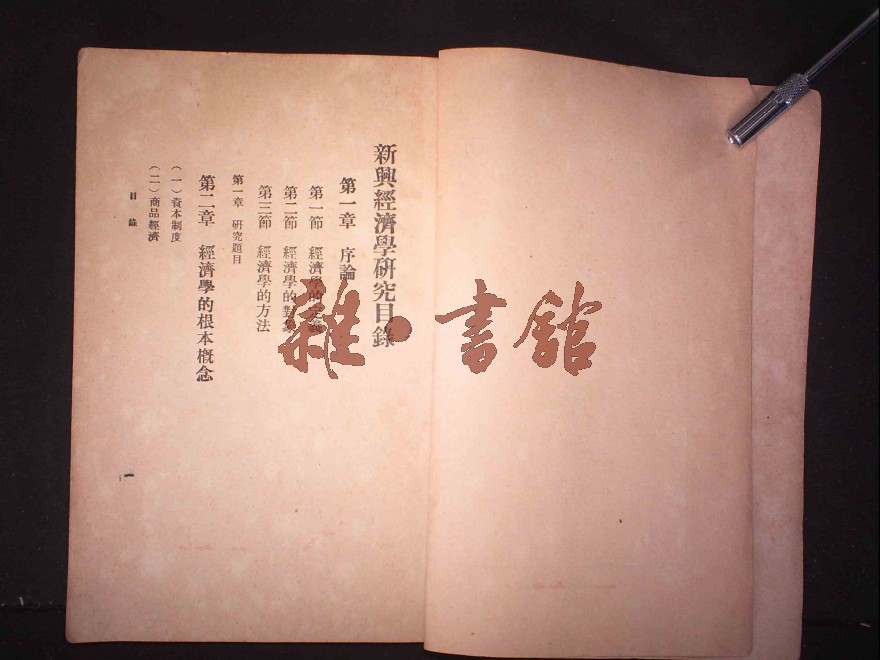 新興經濟學研究目錄
第一章 序論
第一節 經濟學的定義
第二節 經濟學的對象
第三節 經濟學的方法
第一章 研究題目
第二章 經濟學的根本概念
(一)資本制度
(二)商品經濟
目錄
一
雜·書館